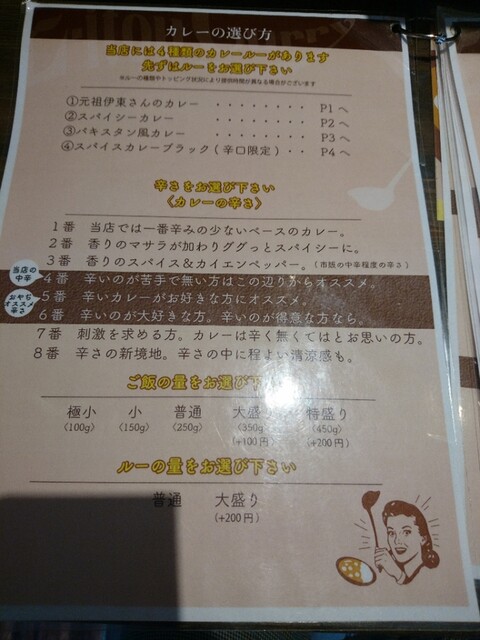 カレーの選び方
当店には4種類のカレールーがあります
先ずはルーをお選び下さい
※ルーの種類やトッピング状況により提供時間が異なる場合がございます
①元祖伊東さんのカレー ・・・・・・・・・ P1へ
②スパイシーカレー ・・・・・・・・・ P2へ
③パキスタン風カレー ・・・・・・・・・ P3へ
④スパイスカレーブラック(辛口限定)・・ P4へ
辛さをお選び下さい
〈カレーの辛さ〉
1番 当店では一番辛みの少ないベースのカレー。
2番 香りのマサラが加わりググっとスパイシーに。
3番 香りのスパイス&カイエンペッパー。(市販の中辛程度の辛さ)
当店の中辛 4番 辛いのが苦手で無い方はこの辺りからオススメ。
おやぢオススメ辛さ 5番 辛いカレーがお好きな方にオススメ。
6番 辛いのが大好きな方。辛いのが得意な方なら。
7番 刺激を求める方。カレーは辛く無くてはとお思いの方。
8番 辛さの新境地。辛さの中に程よい清涼感も。
ご飯の量をお選び下さい
極小 小 普通 大盛り 特盛り
〈100g〉 〈150g〉 〈250g〉 〈350g〉 〈450g〉
(+100円) (+200円)
ルーの量をお選び下さい
普通 大盛り
(+200円)